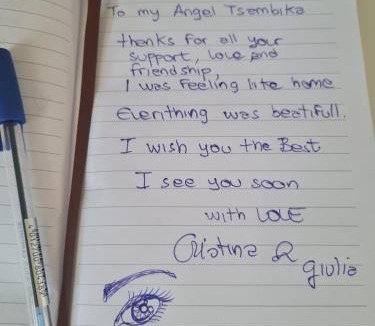 To my Angel Tsambika
thanks for all your
support, love and
friendship,
I was feeling like home
Everithing was beatifull.
I wish you the Best
I see you soon
with LOVE
Cristina &
giulia